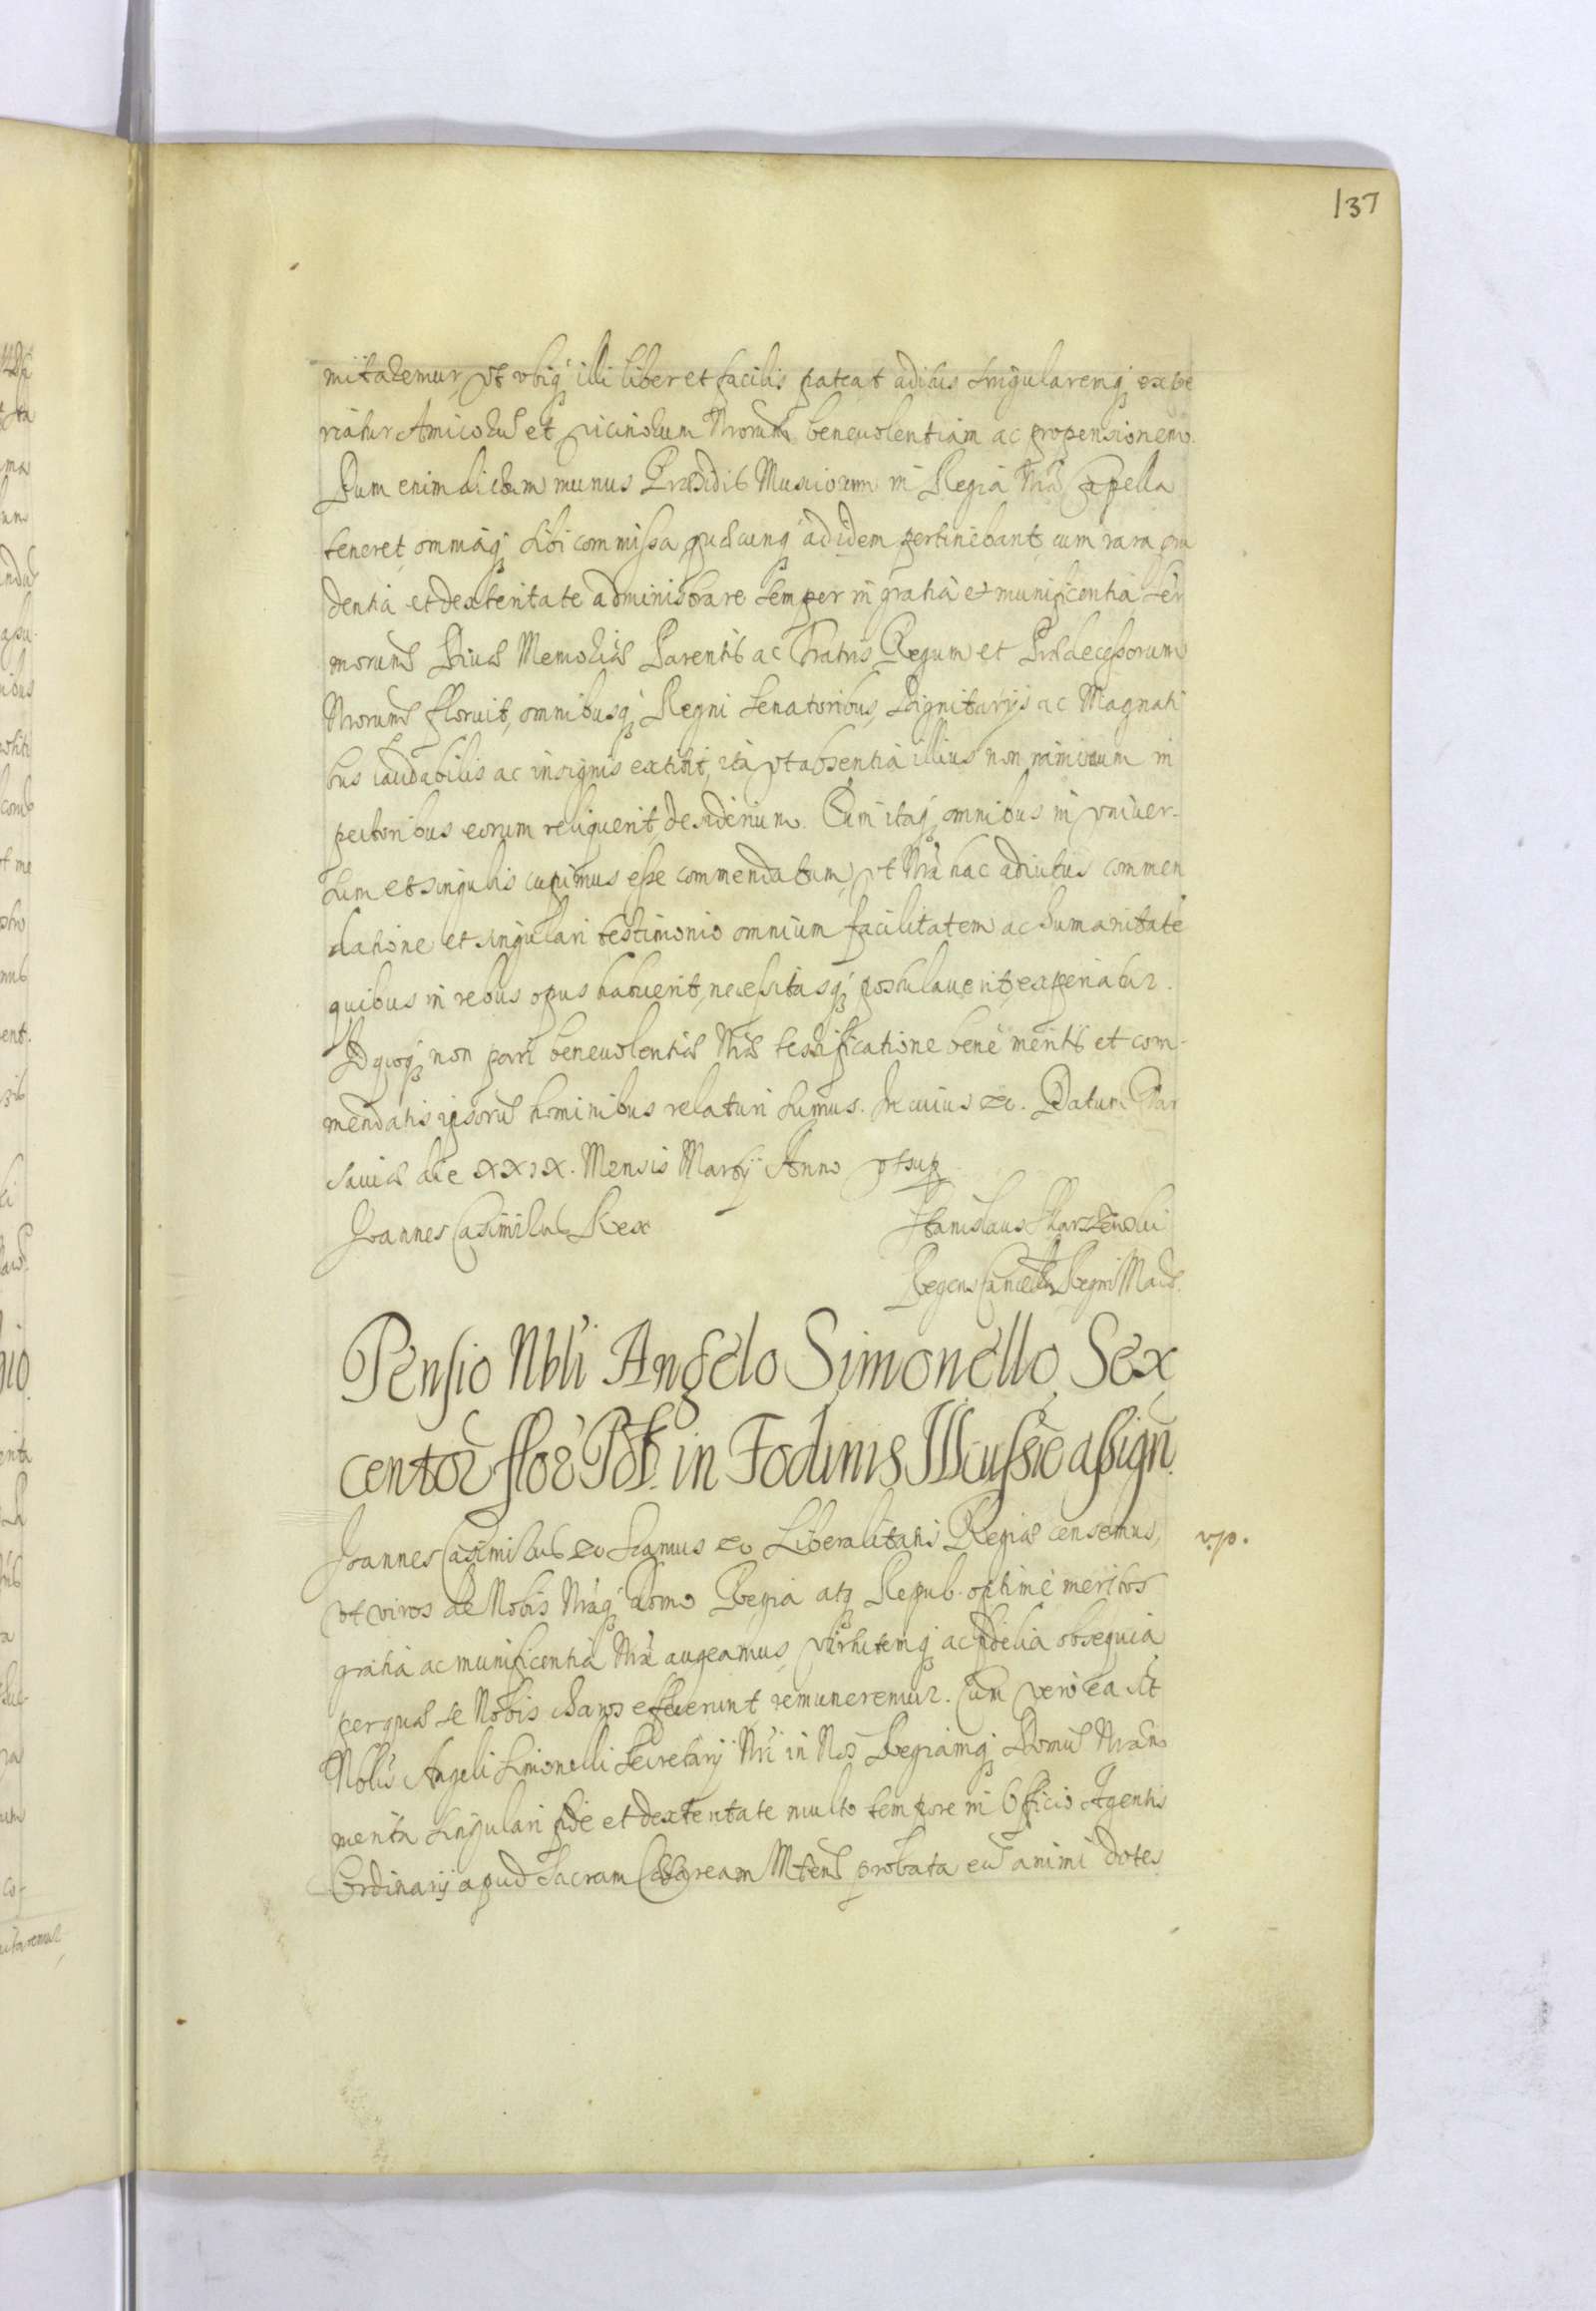 137
mitaremur, vt vbiq; illi liber et facilis pateat aditus singularemq; expe
riatur Amicorū et vicinorum Nrorum beneuolentiam ac propensionem.
Dum enim dictum munus Præsidis Musicorum in Regia Nrã Capella
teneret, omniaq; sibi commissa, quæcunq; ad idem pertinebant, cum rara pru
dentia et dexteritate administrare semper in gratia et munificentia Ser
morum Diuæ Memoriæ Parentis ac Fratris Regum et Prædecessorum
Nrorum floruit, omnibusq; Regni Senatoribus, Dignitarijs ac Magnati
bus laudabilis ac insignis extitit, ita vt absentia illius non minimum in
pectoribus eorum reliquerit desiderium. Eum itaq; omnibus in vniuer-
sum et singulis cupimus esse commendatum, vt Nrã hac adiutus commen
datione et singulari testimonio omnium facilitatem ac humanitatē
quibus in rebus opus habuerit, necessitasq; postulauerit, experiatur.
Id quoq; non pari beneuolentiæ Nræ testificatione benè meritis et com-
mendatis ipsorū hominibus relaturi sumus. In cuius &c. Datum Var
sauiæ die XXIX. Mensis Martij Anno vt sup
Joannes Casimirus Rex
Stanislaus Skarszewski
Regens Cancellr Regni Maior.
Pensio Nbli Angelo Simonello Sex
centor flor Pol. in Fodinis Ilcussiē assign.
Joannes Casimirus &c Scamus &c Liberalitatis Regiæ censemus,
v.p.
vt viros de Nobis Nráq; Domo Regia atq; Repub. optimè meritos
gratia ac munificentia Nrã augeamus, virtutemq; ac fidelia obsequia,
per quæ se Nobis charos effecerunt remuneremur. Cum verò ea sit
Nblis Angeli Simonelli Secretarij Nri in Nos Regiamq; Domū Nram
merita singulari fide et dexteritate multo tempore in Officio Agentis
Ordinarij apud Sacram Cæsaream Mttem probata eæ animi dotes